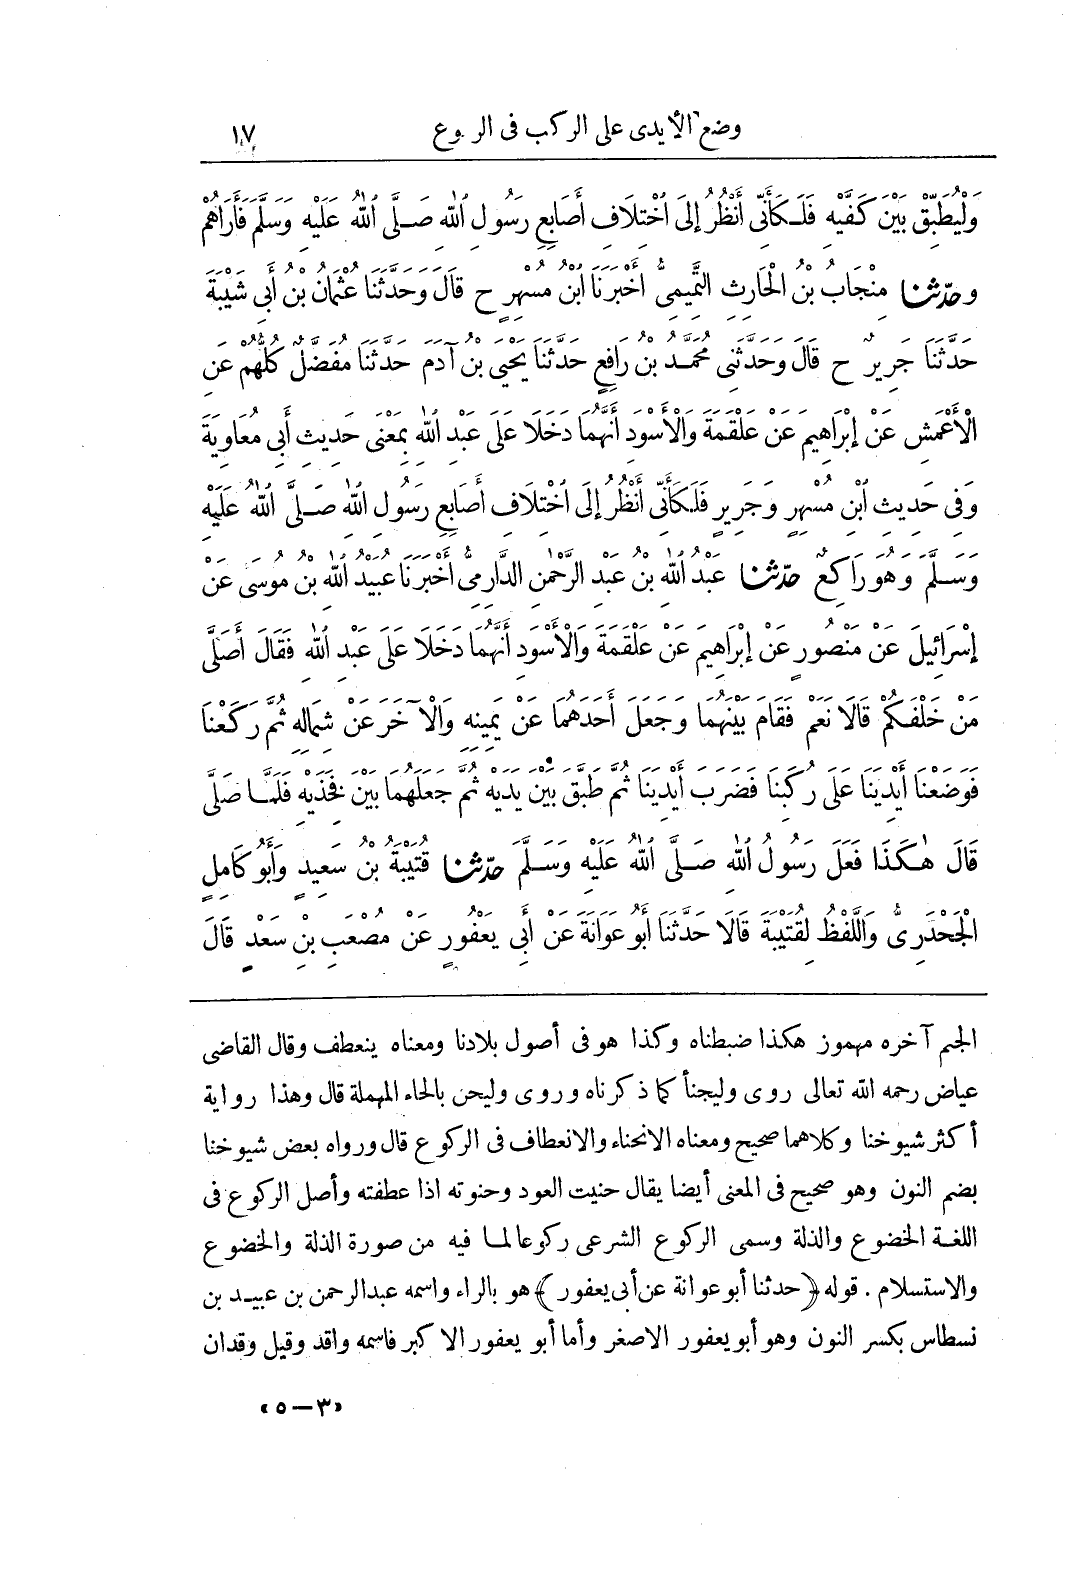 وضع الأيدى على الركب فى الر وع ١٧
وَلْيُطَبِّقْ بَيْنَ كَفَّيْهِ فَلَكَأَنِّى أَنْظُرُ إِلَى اُخْتِلَافِ أَصَابِعِ رَسُولِ اُللهِ صَلَّى اُللهُ عَلَيْهِ وَسَلَّمَ فَأَرَاهُمْ
وحدّثنا مِنْجَابُ بْنُ الْحَارِثِ التَّمِيمِىُّ أَخْبَرَنَا ابْنُ مُسْهِرٍ ح قَالَ وَحَدَّثَنَا عُثْمَانُ بْنُ أَبِى شَيْبَةَ
حَدَّثَنَا جَرِيرٌ ح قَالَ وَحَدَّثَنِى مُحَمَّدُ بْنُ رَافِعٍ حَدَّثَنَا يَحْيَى بْنُ آدَمَ حَدَّثَنَا مُفَضَّلٌ كُلُّهُمْ عَنِ
الْأَعْمَشِ عَنْ إِبْرَاهِيمَ عَنْ عَلْقَمَةَ وَالْأَسْوَدِ أَنَّهُمَا دَخَلَا عَلَى عَبْدِ اُللهِ بِمَعْنَى حَدِيثِ أَبِى مُعَاوِيَةَ
وَفِى حَدِيثِ اُبْنِ مُسْهِرٍ وَجَرِيرٍ فَلَكَأَنِّى أَنْظُرُ إِلَى اُخْتِلَافِ أَصَابِعِ رَسُولِ اُللهِ صَلَّى اُللهُ عَلَيْهِ
وَسَلَّمَ وَهُوَ رَاكِعٌ حدّثنا عَبْدُ اُللهِ بْنُ عَبْدِ الرَّحْمٰنِ الدَّارِمِىُّ أَخْبَرَنَا عُبَيْدُ اُللهِ بْنُ مُوسَى عَنْ
إِسْرَائِيلَ عَنْ مَنْصُورٍ عَنْ إِبْرَاهِيمَ عَنْ عَلْقَمَةَ وَالْأَسْوَدِ أَنَّهُمَا دَخَلَا عَلَى عَبْدِ اُللهِ فَقَالَ أَصَلَّى
مَنْ خَلْفَكُمْ قَالَا نَعَمْ فَقَامَ بَيْنَهُمَا وَجَعَلَ أَحَدَهُمَا عَنْ يَمِينِهِ وَالْآخَرَ عَنْ شِمَالِهِ ثُمَّ رَكَعْنَا
فَوَضَعْنَا أَيْدِيَنَا عَلَى رُكَبِنَا فَضَرَبَ أَيْدِيَنَا ثُمَّ طَبَّقَ بَيْنَ يَدَيْهِ ثُمَّ جَعَلَهُمَا بَيْنَ فَخِذَيْهِ فَلَمَّا صَلَّى
قَالَ هٰكَذَا فَعَلَ رَسُولُ اُللهِ صَلَّى اُللهُ عَلَيْهِ وَسَلَّمَ حدّثنا قُتَيْبَةُ بْنُ سَعِيدٍ وَأَبُو كَامِلٍ
الْجَحْدَرِىُّ وَاللَّفْظُ لِقُتَيْبَةَ قَالَا حَدَّثَنَا أَبُو عَوَانَةَ عَنْ أَبِى يَعْفُورٍ عَنْ مُصْعَبِ بْنِ سَعْدٍ قَالَ
الجيم آخره مهموز هكذا ضبطناه وكذا هو فى أصول بلادنا ومعناه ينعطف وقال القاضى
عياض رحمه الله تعالى روى وليجنأ كما ذكرناه وروى وليحن بالحاء المهملة قال وهذا رواية
أكثر شيوخنا وكلاهما صحيح ومعناه الانحناء والانعطاف فى الركوع قال ورواه بعض شيوخنا
بضم النون وهو صحيح فى المعنى أيضا يقال حنيت العود وحنوته اذا عطفته وأصل الركوع فى
اللغة الخضوع والذلة وسمى الركوع الشرعى ركوعا لما فيه من صورة الذلة والخضوع
والاستسلام . قوله ﴿حدثنا أبو عوانة عن أبى يعفور﴾ هو بالراء واسمه عبدالرحمن بن عبيد بن
نسطاس بكسر النون وهو أبو يعفور الاصغر وأما أبو يعفور الاكبر فاسمه واقد وقيل وقدان
«٣ – ٥»